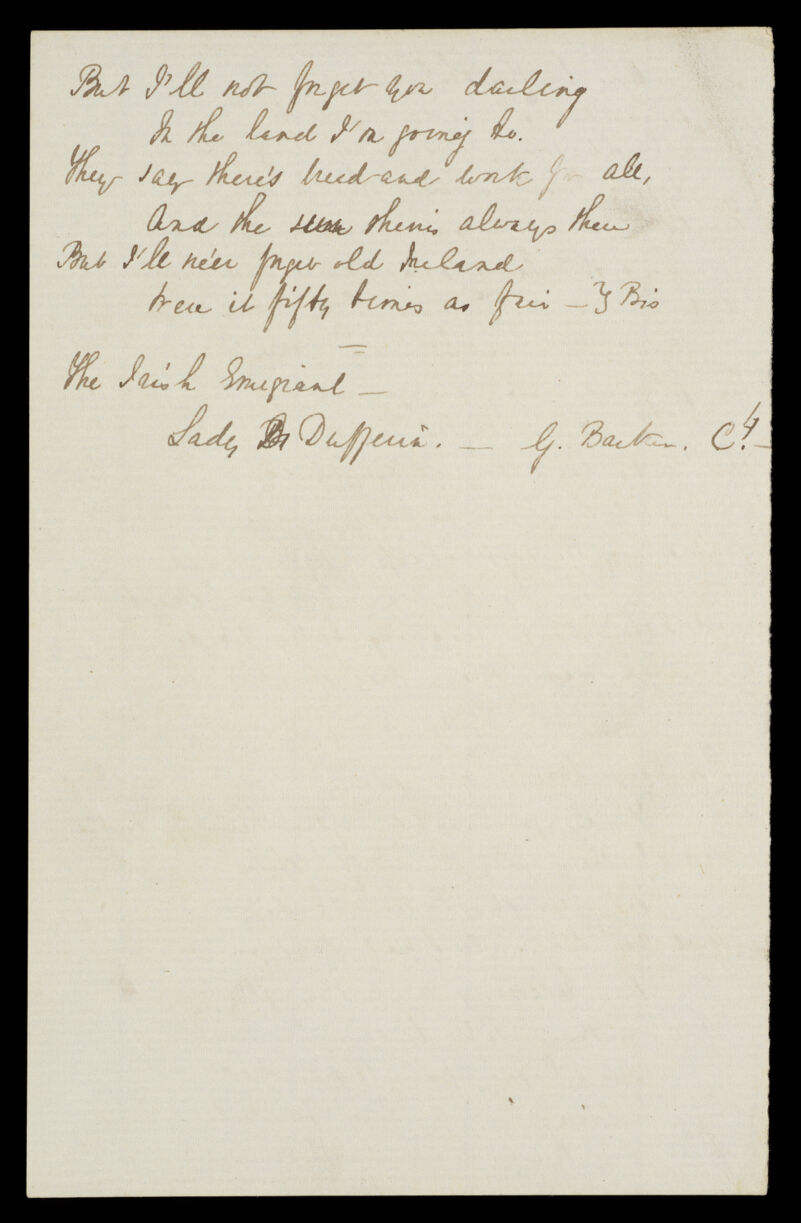 But I'll not forget you darling
In the land I'm going to.
They say there's bread and work for all,
And the sun shines always there
But I'll ne'er forget old Ireland
Were it fifty times as fair — } Bis
The Irish Emigrant —
Lady Dufferin. — G. Barker.